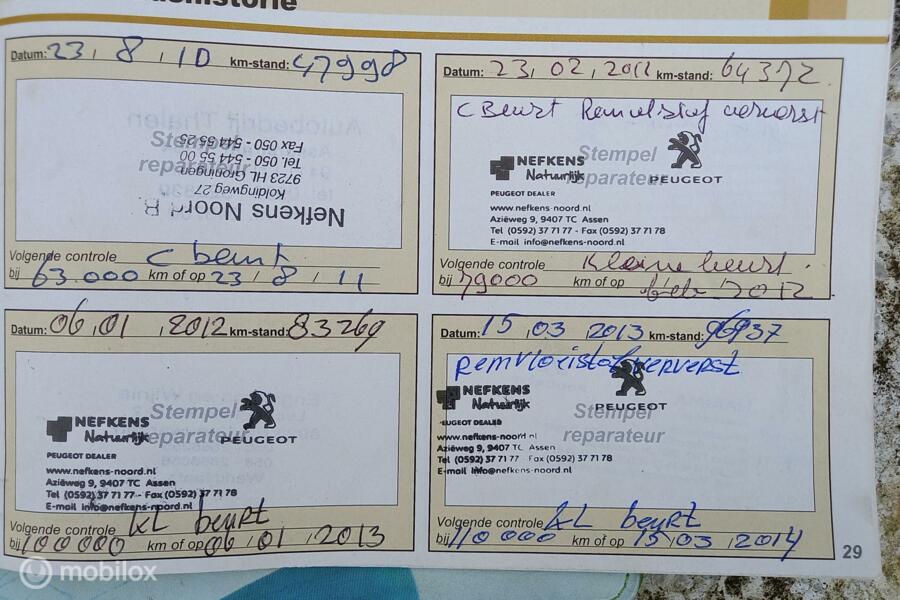 Datum: 23 / 8 / 10 km-stand: 47998
Stempel
reparateur
Nefkens Noord B.
Koldingweg 27
9723 HL Groningen
Tel 050 - 544 55 00
Fax 050 - 544 65 25
Volgende controle C beurt
bij 63.000 km of op 23 / 8 / 11
Datum: 23, 02, 2012 km-stand: 64372
C Beurt Remvlstof ververst
NEFKENS
Natuurlijk
Stempel
reparateur
PEUGEOT
PEUGEOT DEALER
www.nefkens-noord.nl
Aziëweg 9, 9407 TC Assen
Tel (0592) 37 71 77 - Fax (0592) 37 71 78
E-mail info@nefkens-noord.nl
Volgende controle Kleine beurt
bij 79000 km of op 2012
Datum: 06, 01, 2012 km-stand: 83269
NEFKENS
Natuurlijk
Stempel
reparateur
PEUGEOT
PEUGEOT DEALER
www.nefkens-noord.nl
Aziëweg 9, 9407 TC Assen
Tel (0592) 37 71 77 - Fax (0592) 37 71 78
E-mail info@nefkens-noord.nl
Volgende controle KL beurt
bij 100000 km of op 06 / 01 / 2013
Datum: 15, 03, 2013 km-stand: 96937
remvloeistof ververst
NEFKENS
Natuurlijk
Stempel
reparateur
PEUGEOT
EUGEOT DEALER
www.nefkens-noord nl
Aziëweg 9, 9407 TC Assen
Tel (0592) 37 71 77 - Fax (0592) 37 71 78
E-mail info@nefkens-noord.nl
Volgende controle KL beurt
bij 110000 km of op 15, 03, 2014
29
mobilox